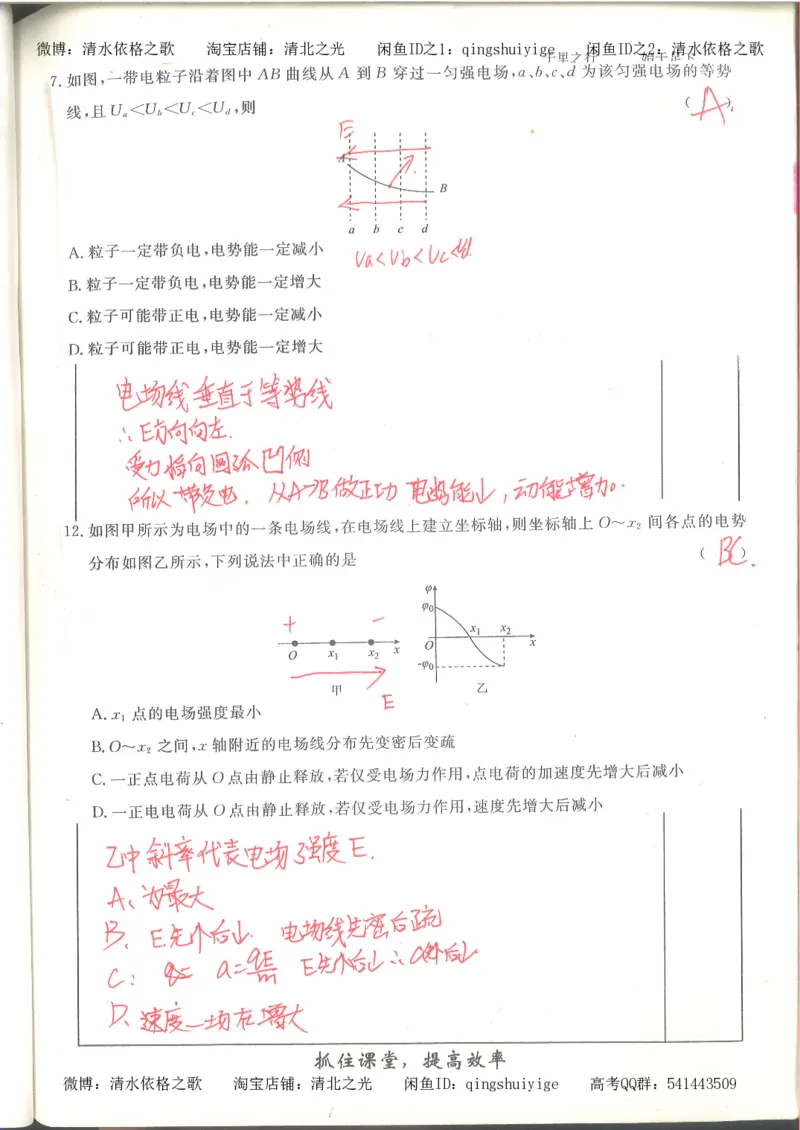 微博：清水依格之歌 淘宝店铺：清北之光 闲鱼ID之1：qingshuiyige 闲鱼ID之2：清水依格之歌
7.如图,一带电粒子沿着图中AB曲线从A到B穿过一匀强电场,a、b、c、d为该匀强电场的等势
线,且Uₐ<U_b<U_c<U_d,则 ( A )
E
A
B
a b c d
Ua<Ub<Uc<Ud
A.粒子一定带负电,电势能一定减小
B.粒子一定带负电,电势能一定增大
C.粒子可能带正电,电势能一定减小
D.粒子可能带正电,电势能一定增大
电场线垂直于等势线
∴E方向向左.
受力指向圆弧凹侧
所以带负电. 从A→B做正功 电势能小,动能增加.
12.如图甲所示为电场中的一条电场线,在电场线上建立坐标轴,则坐标轴上O～x₂间各点的电势
分布如图乙所示,下列说法中正确的是 ( BC )
+ −
O x₁ x₂ x
E
甲
φ
φ₀
O x₁ x₂ x
-φ₀
乙
A.x₁点的电场强度最小
B.O～x₂之间,x轴附近的电场线分布先变密后变疏
C.一正点电荷从O点由静止释放,若仅受电场力作用,点电荷的加速度先增大后减小
D.一正电电荷从O点由静止释放,若仅受电场力作用,速度先增大后减小
乙中斜率代表电场强度E.
A、为最大
B、E先个后小 电场线先密后疏
C: a=qE/m E先个后小∴a先个后小
D、速度一均在增大
抓住课堂，提高效率
微博：清水依格之歌 淘宝店铺：清北之光 闲鱼ID：qingshuiyige 高考QQ群：541443509